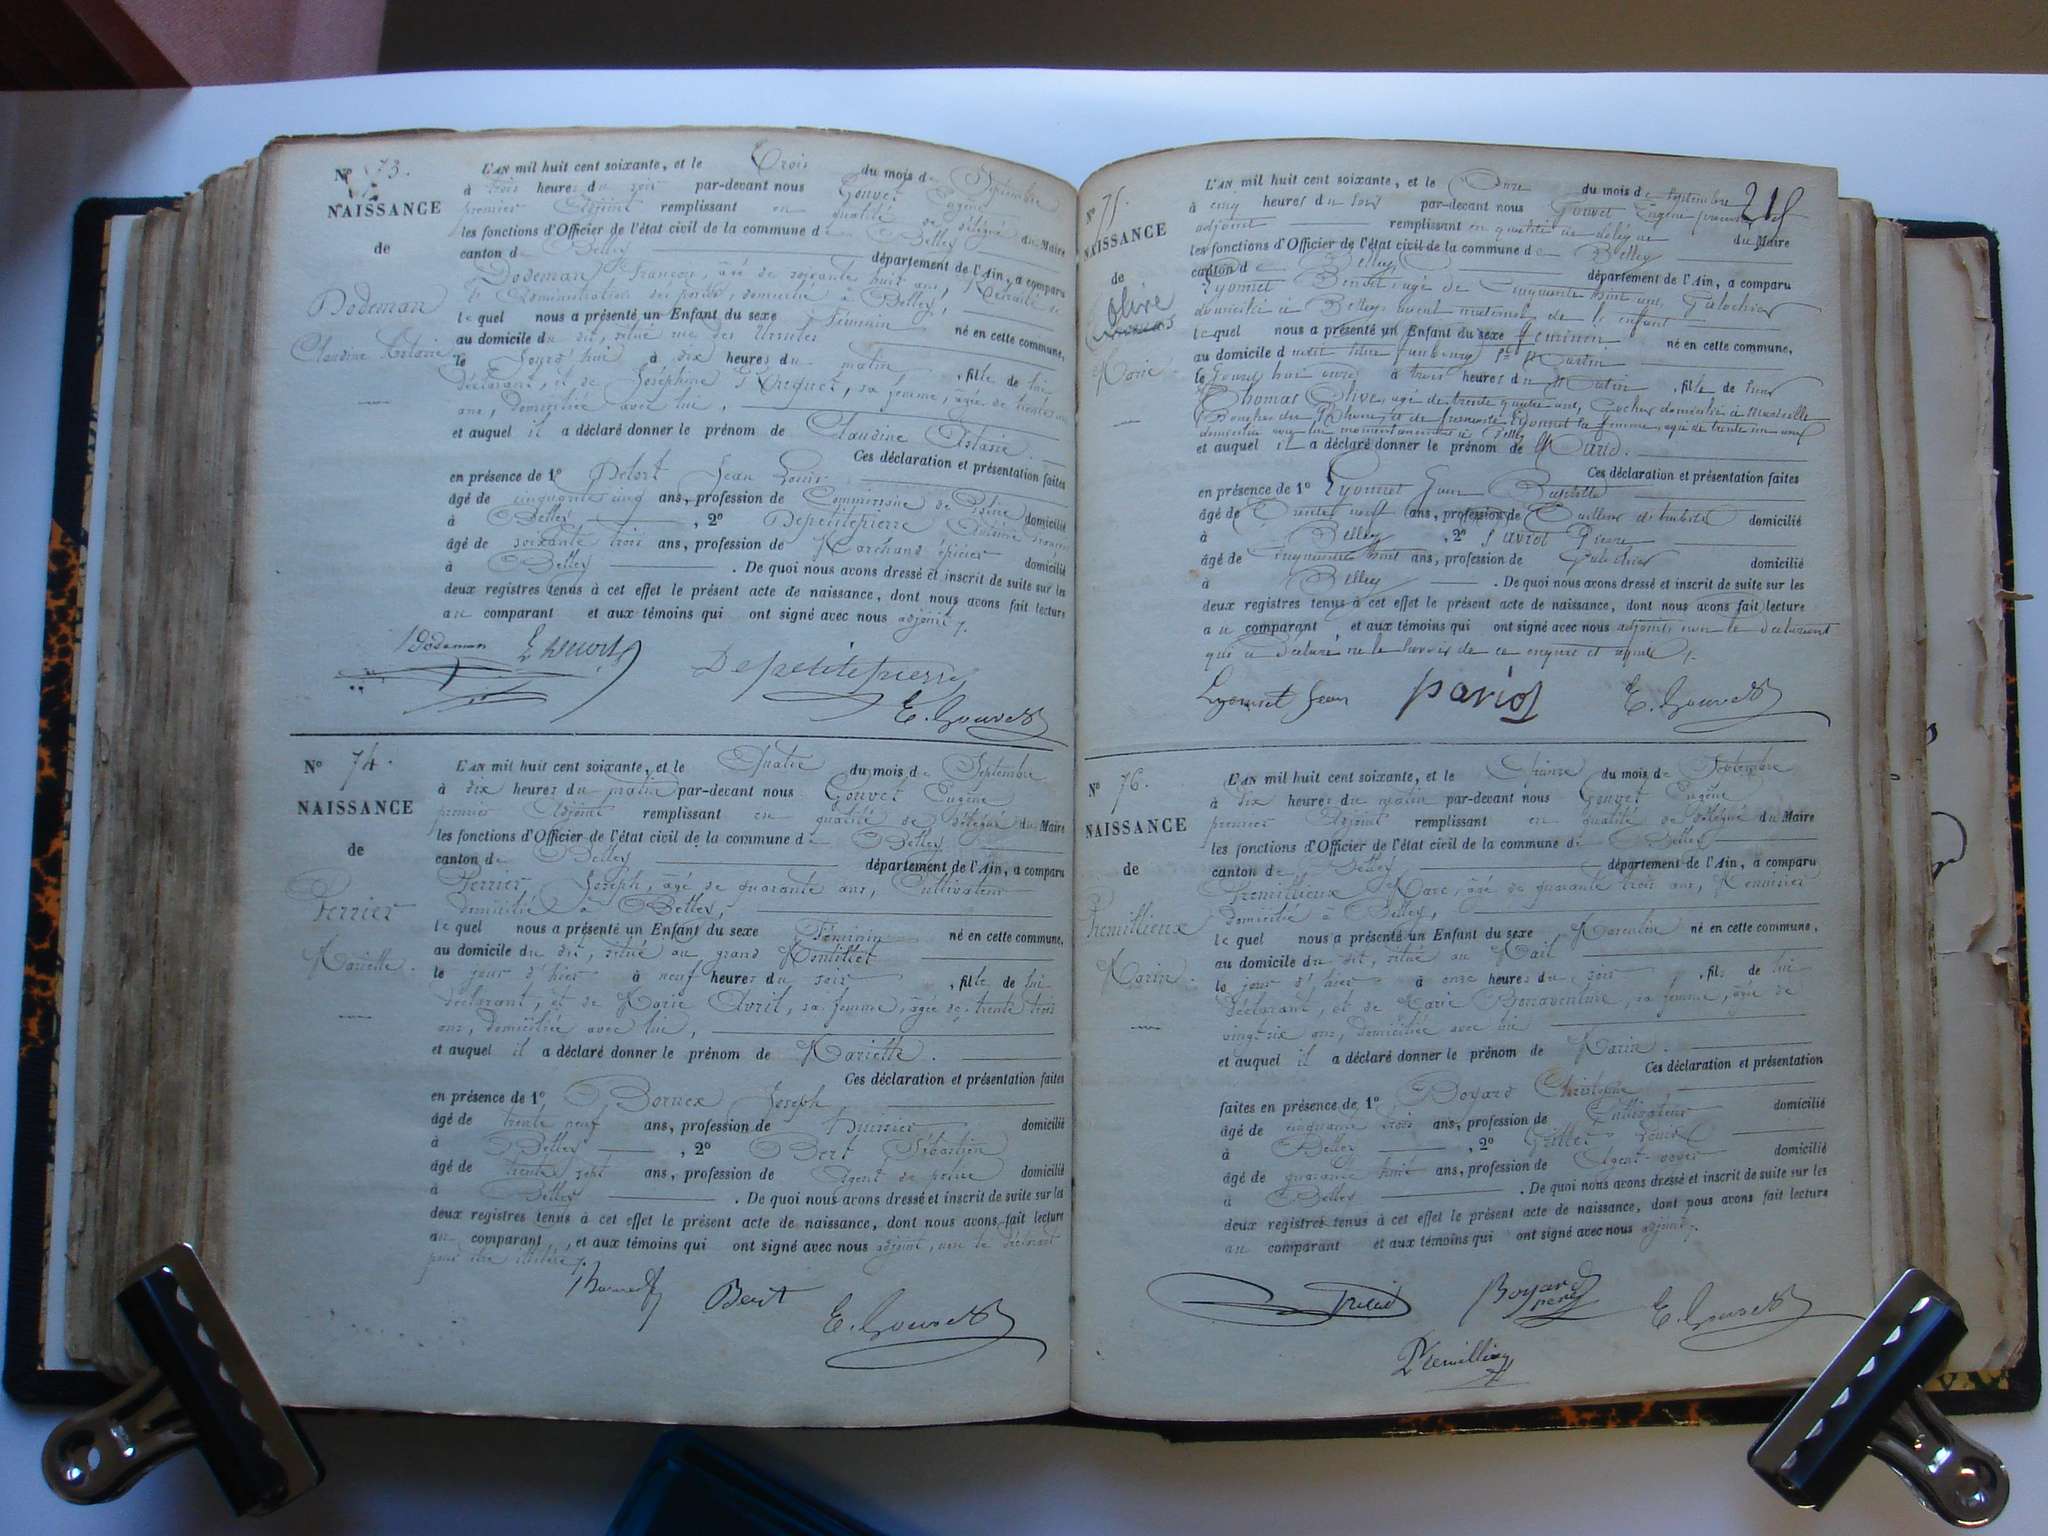 Nº 73.
NAISSANCE
de
Dodeman
Claudine Astasie
L'AN mil huit cent soixante, et le Trois du mois de Septembre
à trois heures du soir par-devant nous Gouvet Eugène
premier Adjoint remplissant en qualité de délégué du Maire
les fonctions d'Officier de l'état civil de la commune de Belley
canton de Belley département de l'Ain, a comparu
Dodeman François, âgé de soixante huit ans, Retraité de
l'Administration des postes, domicilié à Belley,
lequel nous a présenté un Enfant du sexe Féminin né en cette commune,
au domicile du dit, situé rue des Ursules
le jourd'hui à dix heures du matin, fille de lui
déclarant, et de Joséphine sa femme, âgée de trente
ans, domiciliée avec lui,
et auquel il a déclaré donner le prénom de Claudine Astasie.
Ces déclaration et présentation faites
en présence de 1º Delort Jean Louis
âgé de cinquante cinq ans, profession de Commissaire de Police domicilié
à Belley, 2º Depetitepierre Antoine François
âgé de soixante trois ans, profession de Marchand épicier domicilié
à Belley. De quoi nous avons dressé et inscrit de suite sur les
deux registres tenus à cet effet le présent acte de naissance, dont nous avons fait lecture
au comparant et aux témoins qui ont signé avec nous adjoint.
Dodeman
Depetitepierre
E. Gouvet
Nº 74.
NAISSANCE
de
Perrier
Mariette.
L'AN mil huit cent soixante, et le Quatre du mois de Septembre
à dix heures du matin par-devant nous Gouvet Eugène
premier Adjoint remplissant en qualité de délégué du Maire
les fonctions d'Officier de l'état civil de la commune de Belley
canton de Belley département de l'Ain, a comparu
Perrier Joseph, âgé de quarante ans, Cultivateur
domicilié à Belley,
lequel nous a présenté un Enfant du sexe Féminin né en cette commune,
au domicile du dit, situé au grand
le jour d'hier à neuf heures du soir, fille de lui
déclarant, et de Marie Avril, sa femme, âgée de trente trois
ans, domiciliée avec lui,
et auquel il a déclaré donner le prénom de Mariette.
Ces déclaration et présentation faites
en présence de 1º Bornex Joseph
âgé de trente neuf ans, profession de Huissier domicilié
à Belley, 2º Bert Sébastien
âgé de trente sept ans, profession de Agent de police domicilié
à Belley. De quoi nous avons dressé et inscrit de suite sur les
deux registres tenus à cet effet le présent acte de naissance, dont nous avons fait lecture
au comparant, et aux témoins qui ont signé avec nous adjoint, non le déclarant
pour être illitéré.
Bert
E. Gouvet
215
Nº 75.
NAISSANCE
de
Olive
Marie
L'AN mil huit cent soixante, et le Onze du mois de Septembre
à cinq heures du soir par-devant nous Gouvet Eugène premier
adjoint remplissant en qualité de délégué du Maire
les fonctions d'Officier de l'état civil de la commune de Belley
canton de Belley département de l'Ain, a comparu
Lyonnet Benoit, âgé de cinquante huit ans, Galochier
domicilié à Belley, ayeul maternel de l'enfant
lequel nous a présenté un Enfant du sexe féminin né en cette commune,
au domicile dudit situé faubourg St Martin
le jourd'hui onze à trois heures du Matin, fille de
Thomas Olive, âgé de trente quatre ans, Cocher domicilié à Marseille
Bouches du Rhône, et de Lyonnet sa femme, âgée de trente un ans
domiciliée avec lui momentanément à Belley
et auquel il a déclaré donner le prénom de Marie.
Ces déclaration et présentation faites
en présence de 1º Lyonnet Jean Baptiste
âgé de trente neuf ans, profession de Tailleur d'habits domicilié
à Belley, 2º Pariot Pierre
âgé de cinquante huit ans, profession de Galochier domicilié
à Belley. De quoi nous avons dressé et inscrit de suite sur les
deux registres tenus à cet effet le présent acte de naissance, dont nous avons fait lecture
au comparant et aux témoins qui ont signé avec nous adjoint, non le déclarant
qui a déclaré ne le savoir de ce enquis et appelé
Lyonnet Jean
Pariot
E. Gouvet
Nº 76.
NAISSANCE
de
Premillieux
Marin.
L'AN mil huit cent soixante, et le Quinze du mois de Septembre
à dix heures du matin par-devant nous Gouvet Eugène
premier Adjoint remplissant en qualité de délégué du Maire
les fonctions d'Officier de l'état civil de la commune de Belley
canton de Belley département de l'Ain, a comparu
Premillieux Marc, âgé de quarante trois ans, Menuisier
domicilié à Belley,
lequel nous a présenté un Enfant du sexe Masculin né en cette commune,
au domicile du dit, situé au Mail
le jour d'hier à onze heures du soir, fils de lui
déclarant, et de Marie Bonnaventure, sa femme, âgée de
vingt-six ans, domiciliée avec lui
et auquel il a déclaré donner le prénom de Marin.
Ces déclaration et présentation
faites en présence de 1º Boyard Christophe
âgé de cinquante trois ans, profession de Cultivateur domicilié
à Belley, 2º Grillet Louis
âgé de quarante huit ans, profession de Agent-voyer domicilié
à Belley. De quoi nous avons dressé et inscrit de suite sur les
deux registres tenus à cet effet le présent acte de naissance, dont nous avons fait lecture
au comparant et aux témoins qui ont signé avec nous adjoint.
Boyard
père
E. Gouvet
Premillieux